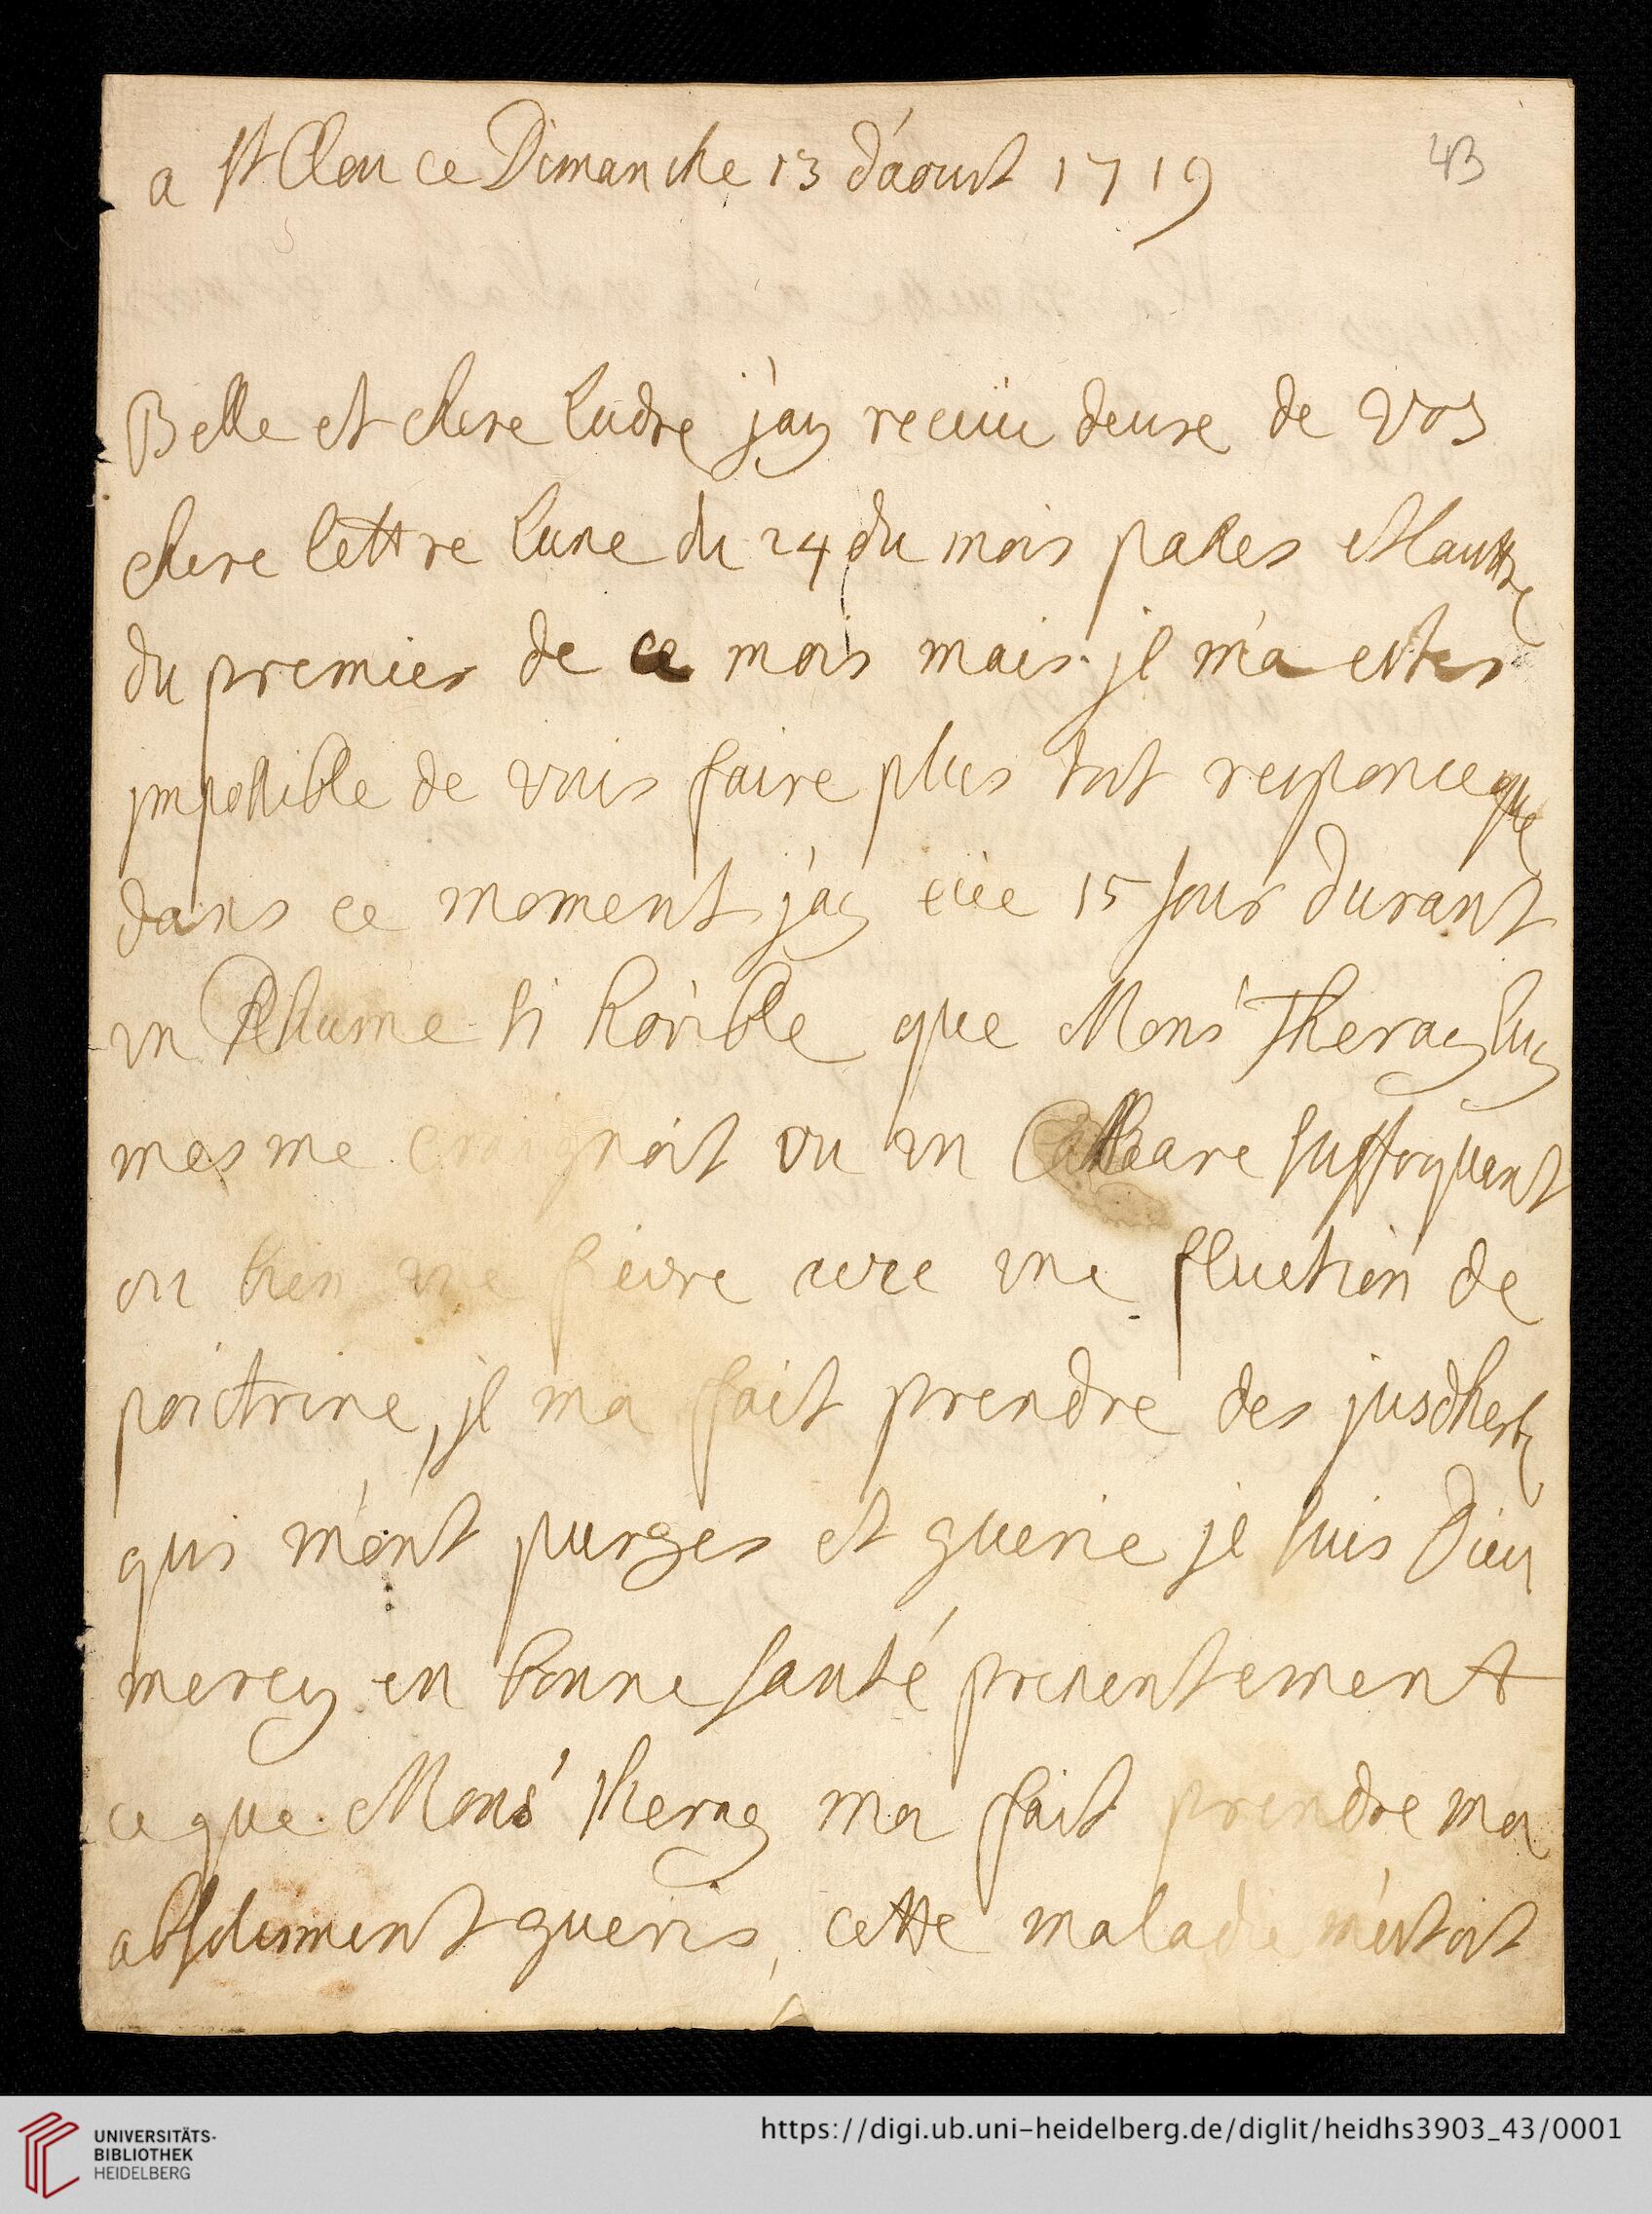 a St Clou ce Dimanche 13 d'aoust 1719
43
Belle et chere Ludre j'ay receüe deuxe de vos
chere lettre lune du 24 du mois passes et lauttre
du premier de ce mois mais jl m'a estes
jmpossible de vous faire plus tost responce que
dans ce moment j'ay eüe 15 jour durant
un Rhume si horible que Mons' Theray luy
mesme craignoit ou un Catthare suffoquent
ou bien une fievre avec une fluction de
poictrine, jl ma fait prendre des jus dherbe
qui m'ont purges et guerie je suis Dieu
mercy en bonne santé presentement
ce que Mons' Theray ma fait prendre ma
absolument gueris, cette maladie m'estoit
UNIVERSITÄTS-
BIBLIOTHEK
HEIDELBERG
https://digi.ub.uni-heidelberg.de/diglit/heidhs3903_43/0001